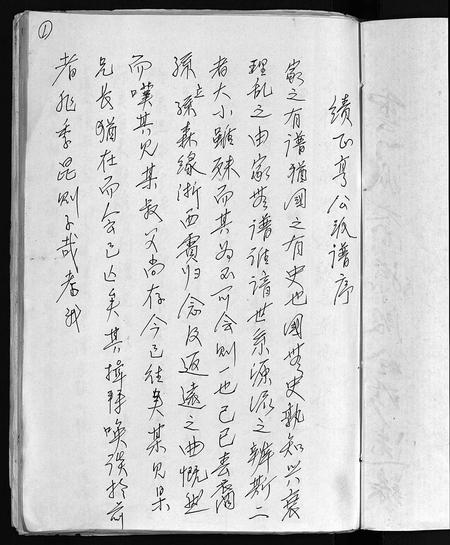 ①
续正亨公派谱序
家之有谱犹国之有史也国无史孰知兴衰
理乱之由家无谱谁谙世系源流之辨斯二
者大小虽殊而其为不可舍则一也己巳春裔
孫上森缘浙西賓归念及返遠之曲慨然
而嘆其兄某叔父尚存今已往矣某兄某
兄长猶在而今已亡矣其揖拜唤误於前
者非季昆则子哉者我